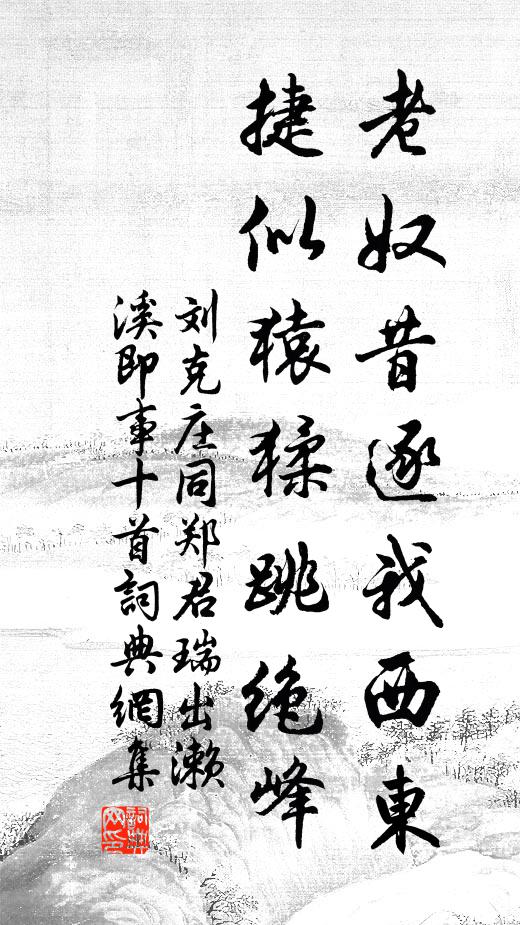 老奴昔逐我西東
捷似猿猱跳绝峰
刘克庄同郑君瑞出濑
溪即事十首詞典網集